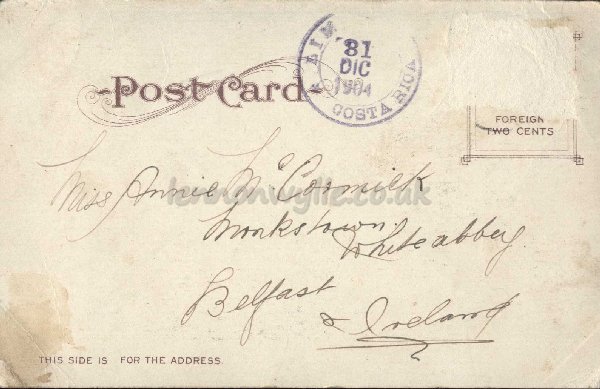 LIM
31
DIC
1904
COSTA RICA
Post Card
FOREIGN
TWO CENTS
Miss Annie McCormick
lennonwylie.co.uk
Monkstown
Whiteabbey
Belfast
Ireland
THIS SIDE IS FOR THE ADDRESS.